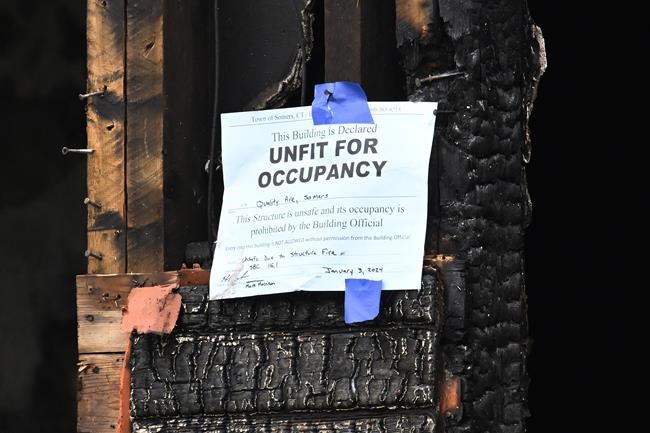 Town of Somers, CT -
This Building is Declared
UNFIT FOR
OCCUPANCY
Quality Ave, Somers
This Structure is unsafe and its occupancy is
prohibited by the Building Official
Entry into this building is NOT ALLOWED without permission from the Building Official
Unsafe Due to Structure Fire
SBC 116.1
January 3, 2024
Mark